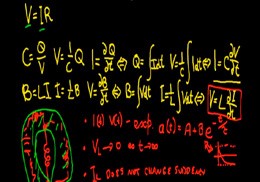 V=IR
C=Q/V V=1/C Q I=∂Q/∂t ⇔ Q=∫Idt V=1/C∫Idt ⇔ I=C ∂V/∂t
B=LI I=1/L B V=∂B/∂t ⇔ B=∫Vdt I=1/L∫Vdt ⇔ V=L ∂I/∂t
• I(t) V(t) - exp. a(t)=A+Be
• V_L→0 as t→∞
• I_L DOES NOT CHANGE SUDDENLY